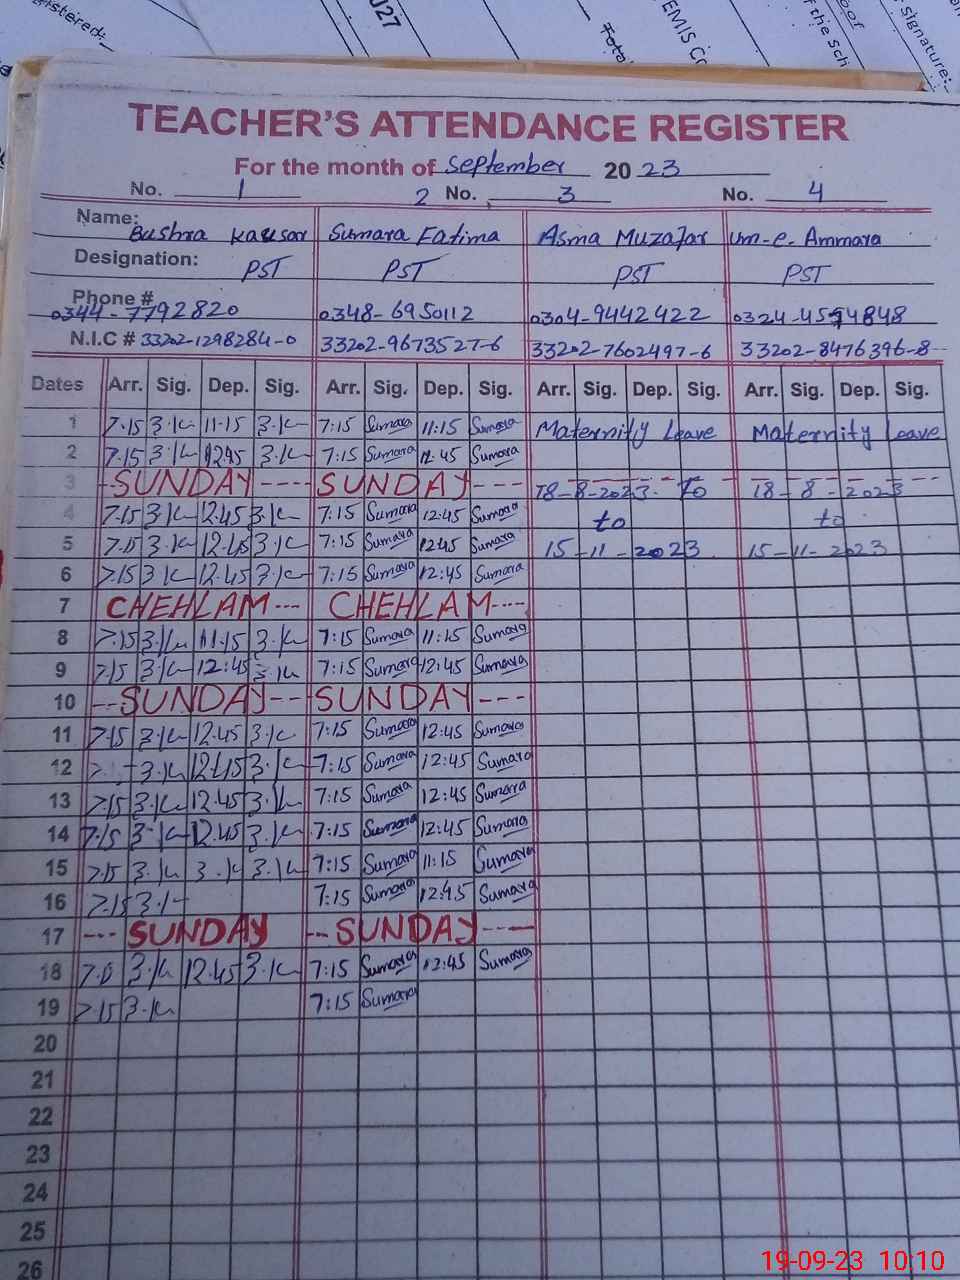 istered:
027
EMIS C
Total
oof
f the Sch
Signature:
TEACHER'S ATTENDANCE REGISTER
For the month of September 2023
No. 1 2 No. 3 No. 4
Name: Bushra Kausar Sumara Fatima Asma Muzafar Um-e-Ammara
Designation: PST PST PST PST
Phone # 0344-7792820 0348-6950112 0304-9442422
N.I.C # 33202-1298284-0 33202-9673527-6 33202-7602497-6 33202-8476396-8
Dates Arr. Sig. Dep. Sig. Arr. Sig. Dep. Sig. Arr. Sig. Dep. Sig. Arr. Sig. Dep. Sig.
1 7.15 3.K 11.15 3.K 7:15 Sumara 11:15 Sumara Maternity Leave Maternity Leave
2 7.15 3.K 12.45 3.K 7:15 Sumara 12:45 Sumara
3 SUNDAY SUNDAY 18-8-2023 To 18-8-2023
4 7.15 3.K 12.45 3.K 7:15 Sumara 12:45 Sumara to to
5 7.15 3.K 12.45 3.K 7:15 Sumara 12:45 Sumara 15-11-2023 15-11-2023
6 7.15 3.K 12.45 3.K 7:15 Sumara 12:45 Sumara
7 CHEHLAM CHEHLAM
8 7.15 3.K 11.15 3.K 7:15 Sumara 11:15 Sumara
9 7.15 3.K 12:45 3.K 7:15 Sumara 12:45 Sumara
10 SUNDAY SUNDAY
11 7.15 3.K 12.45 3.K 7:15 Sumara 12:45 Sumara
12 3.K 12.45 3.K 7:15 Sumara 12:45 Sumara
13 7.15 3.K 12.45 3.K 7:15 Sumara 12:45 Sumara
14 7.15 3.K 12.45 3.K 7:15 Sumara 12:45 Sumara
15 7.15 3.K 3.K 3.K 7:15 Sumara 11:15 Sumara
16 7.15 3.K 7:15 Sumara 12:45 Sumara
17 SUNDAY SUNDAY
18 3.K 12.45 3.K 7:15 Sumara 12:45 Sumara
19 7.15 3.K 7:15 Sumara
20
21
22
23
24
25
26
19-09-23 10:10